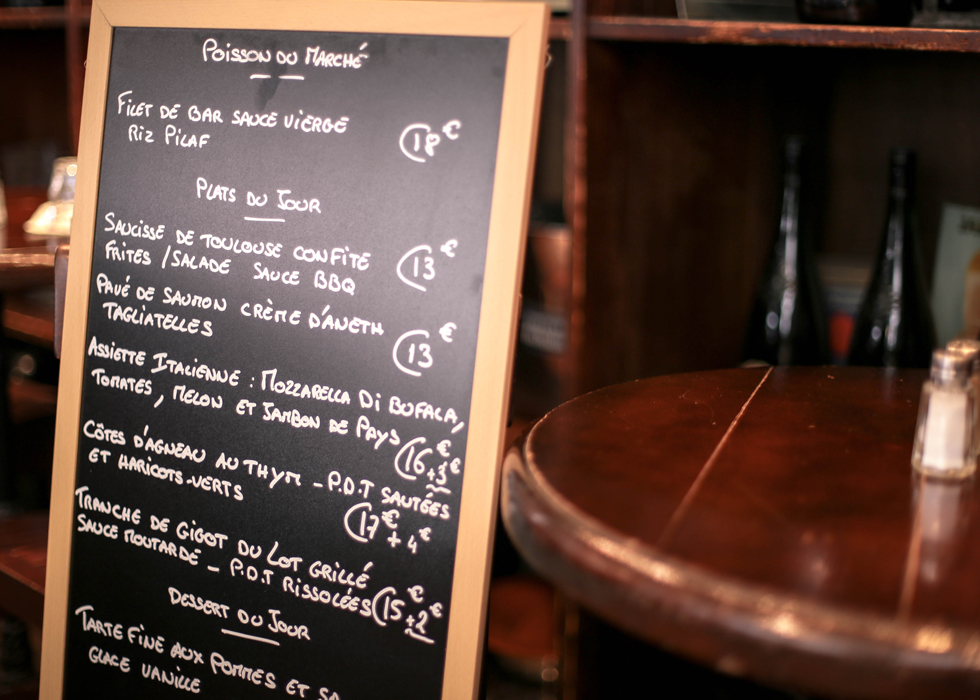 POISSON DU MARCHÉ
FILET DE BAR SAUCE VIERGE
RIZ PILAF
18€
PLATS DU JOUR
SAUCISSE DE TOULOUSE CONFITE
FRITES / SALADE SAUCE BBQ
13€
PAVÉ DE SAUMON CRÈME D'ANETH
TAGLIATELLES
13€
ASSIETTE ITALIENNE : MOZZARELLA DI BUFALA,
TOMATES, MELON ET JAMBON DE PAYS
16€ +3€
CÔTES D'AGNEAU AU THYM - P.D.T SAUTÉES
ET HARICOTS-VERTS
17€ + 4€
TRANCHE DE GIGOT DU LOT GRILLÉ
SAUCE MOUTARDE - P.D.T RISSOLÉES
15€ +2€
DESSERT DU JOUR
TARTE FINE AUX POMMES ET SA
GLACE VANILLE